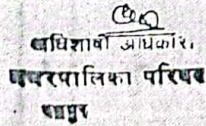 अधिशाषी अधिकारी,
नगरपालिका परिषद